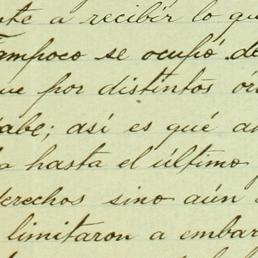 nte a recibir lo qu
Tampoco se ocupó de
ue por distintos ór
abe; así es qué a
a hasta el último
erechos sino aún
limitaron a embar